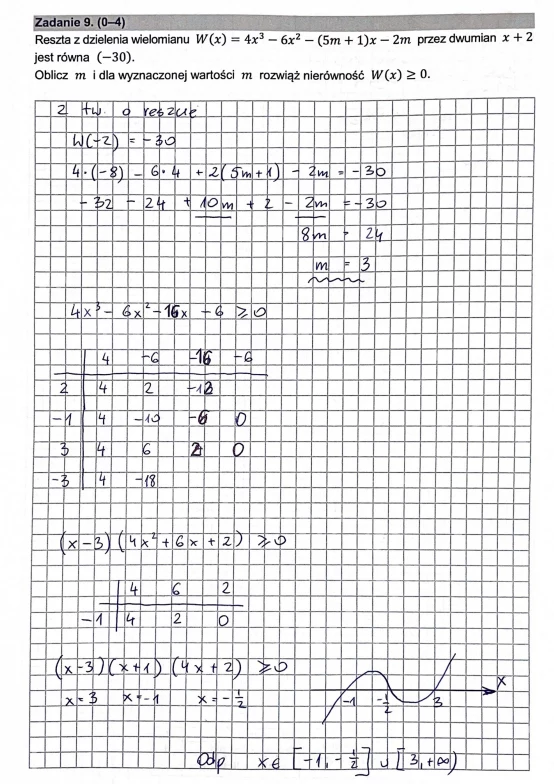 Zadanie 9. (0–4)
Reszta z dzielenia wielomianu W(x) = 4x³ − 6x² − (5m + 1)x − 2m przez dwumian x + 2
jest równa (−30).
Oblicz m i dla wyznaczonej wartości m rozwiąż nierówność W(x) ≥ 0.
z tw. o reszcie
W(−2) = −30
4·(−8) − 6·4 + 2(5m+1) − 2m = −30
−32 − 24 + 10m + 2 − 2m = −30
8m = 24
m = 3
4x³ − 6x² − 16x − 6 ≥ 0
4 −6 −16 −6
2 4 2 −12
−1 4 −10 −6 0
3 4 6 2 0
−3 4 −18
(x−3)(4x² + 6x + 2) ≥ 0
4 6 2
−1 4 2 0
(x−3)(x+1)(4x+2) ≥ 0
x = 3 x = −1 x = −½
−1 −½ 3 x
Odp x ∈ [−1, −½] ∪ [3, +∞)